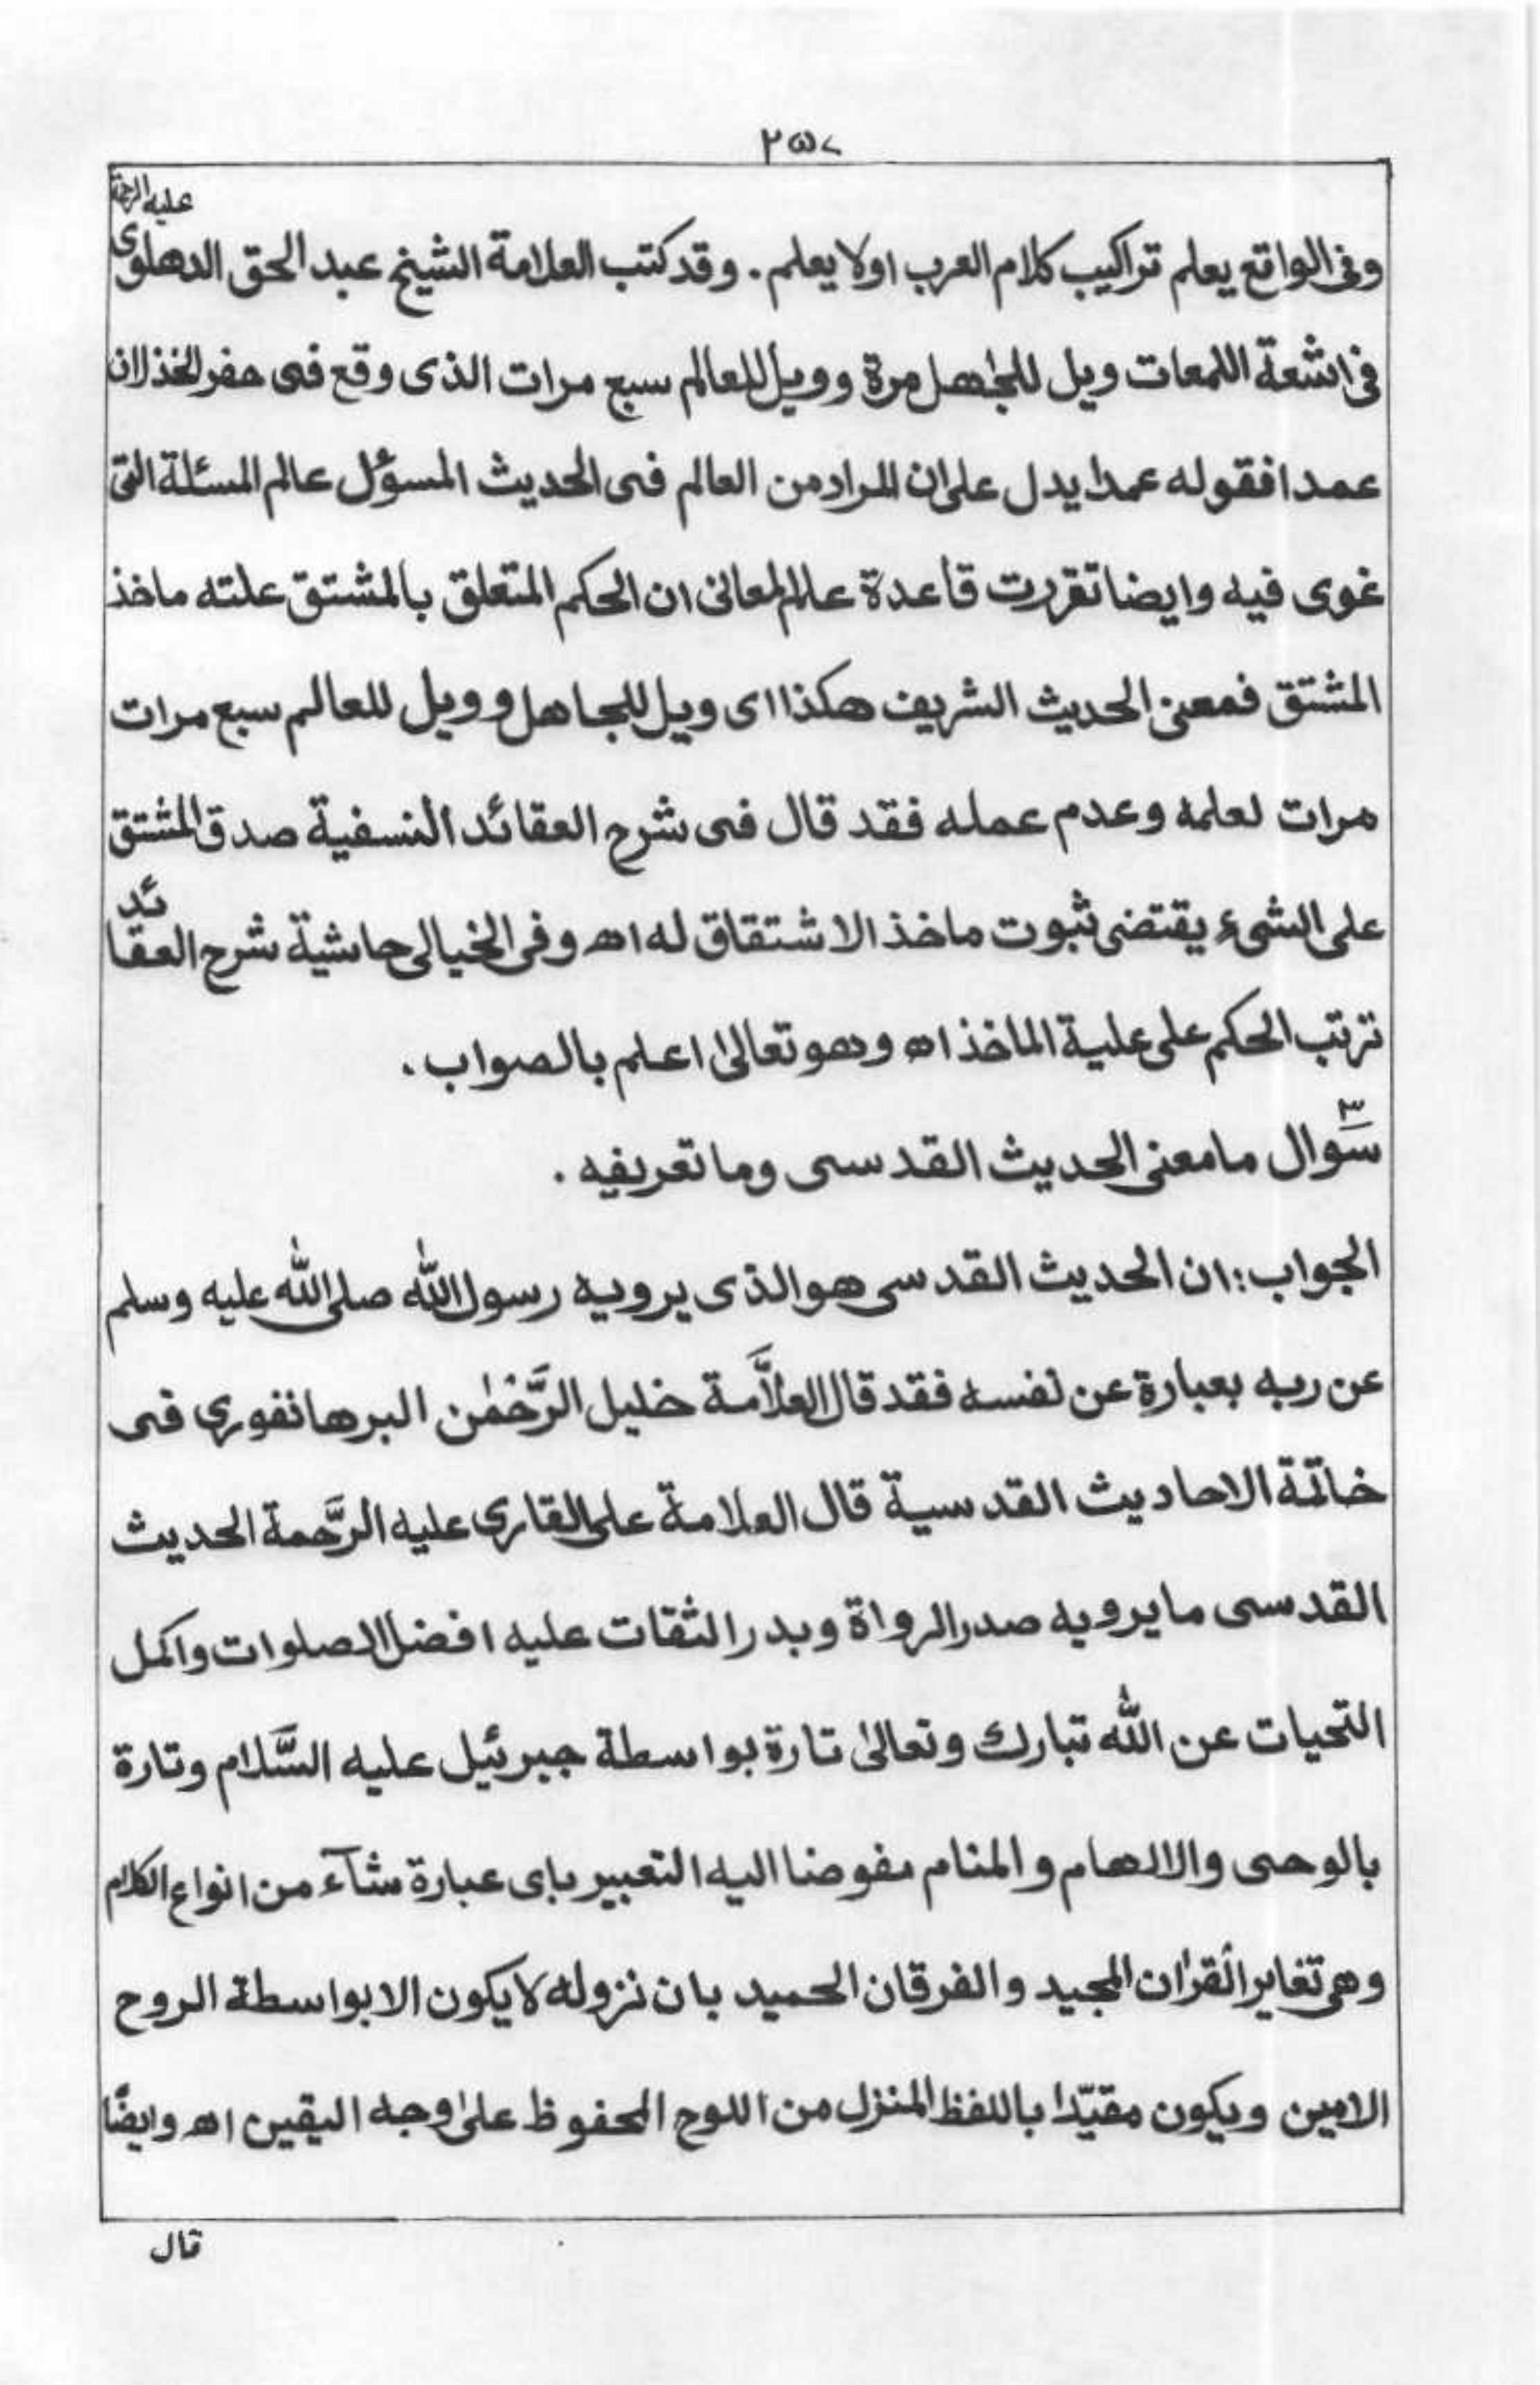 ٢٥٧
عليه الرحمة
وفى الواقع يعلم تراكيب كلام العرب اولا يعلم . وقد كتب العلامة الشيخ عبد الحق الدهلوى
فى اشعة اللمعات ويل للجاهل مرة وويل للعالم سبع مرات الذى وقع فى حفر الخذلان
عمدا فقوله عمدا يدل على ان المراد من العالم فى الحديث المسؤل عالم المسئلة التى
غوى فيه وايضا تقررت قاعدة علم المعانى ان الحكم المتعلق بالمشتق علته ماخذ
المشتق فمعنى الحديث الشريف هكذا اى ويل للجاهل وويل للعالم سبع مرات
مرات لعلمه وعدم عمله فقد قال فى شرح العقائد النسفية صدق المشتق
على الشىء يقتضى ثبوت ماخذ الاشتقاق له اھ وفى الخيالى حاشية شرح العقائد
ترتب الحكم على علية الماخذ اھ وهو تعالىٰ اعلم بالصواب .
سوال ٣ ما معنى الحديث القدسى وما تعريفيه .
الجواب : ان الحديث القدسى هو الذى يرويه رسول اللّٰه صلى اللّٰه عليه وسلم
عن ربه بعبارة عن نفسه فقد قال العلاَّمة خليل الرَّحْمٰن البرهانفورى فى
خاتمة الاحاديث القدسية قال العلامة على القارى عليه الرَّحمة الحديث
القدسى ما يرويه صدر الرواة وبدر الثقات عليه افضل الصلوات واكمل
التحيات عن اللّٰه تبارك وتعالىٰ تارة بواسطة جبرئيل عليه السَّلام وتارة
بالوحى والالهام والمنام مفوضا اليه التعبير باى عبارة شآء من انواع الكلام
وهى تغاير القرٰان المجيد والفرقان الحميد بان نزوله لا يكون الا بواسطة الروح
الامين ويكون مقيّدا باللفظ المنزل من اللوح المحفوظ علىٰ وجه اليقين اھ وايضًا
قال